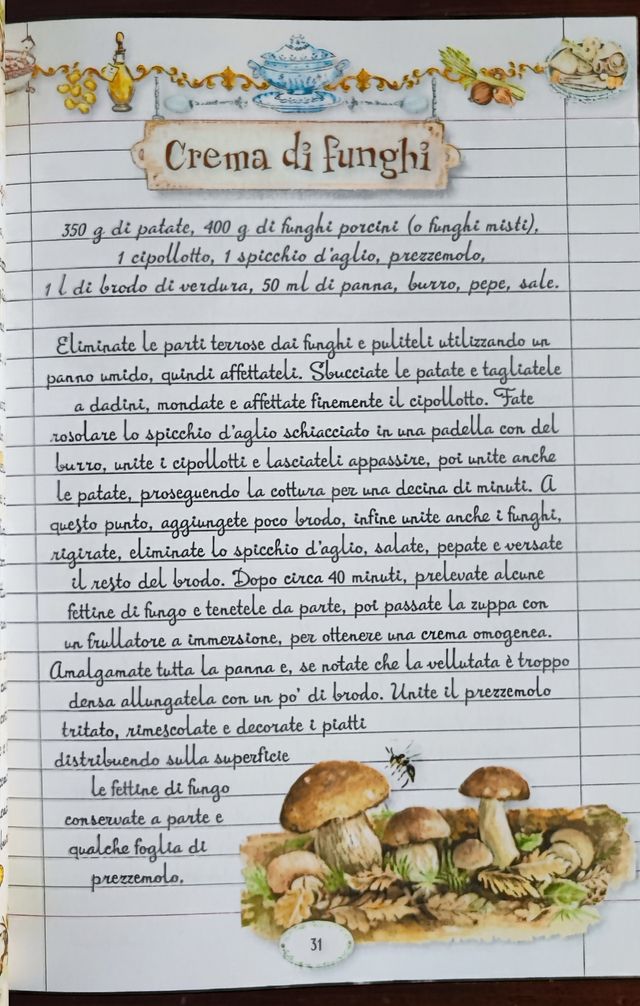 Crema di funghi
350 g di patate, 400 g di funghi porcini (o funghi misti),
1 cipollotto, 1 spicchio d'aglio, prezzemolo,
1 l di brodo di verdura, 50 ml di panna, burro, pepe, sale.
Eliminate le parti terrose dai funghi e puliteli utilizzando un
panno umido, quindi affettateli. Sbucciate le patate e tagliatele
a dadini, mondate e affettate finemente il cipollotto. Fate
rosolare lo spicchio d'aglio schiacciato in una padella con del
burro, unite i cipollotti e lasciateli appassire, poi unite anche
le patate, proseguendo la cottura per una decina di minuti. A
questo punto, aggiungete poco brodo, infine unite anche i funghi,
rigirate, eliminate lo spicchio d'aglio, salate, pepate e versate
il resto del brodo. Dopo circa 40 minuti, prelevate alcune
fettine di fungo e tenetele da parte, poi passate la zuppa con
un frullatore a immersione, per ottenere una crema omogenea.
Amalgamate tutta la panna e, se notate che la vellutata è troppo
densa allungatela con un po' di brodo. Unite il prezzemolo
tritato, rimescolate e decorate i piatti
distribuendo sulla superficie
le fettine di fungo
conservate a parte e
qualche foglia di
prezzemolo.
31